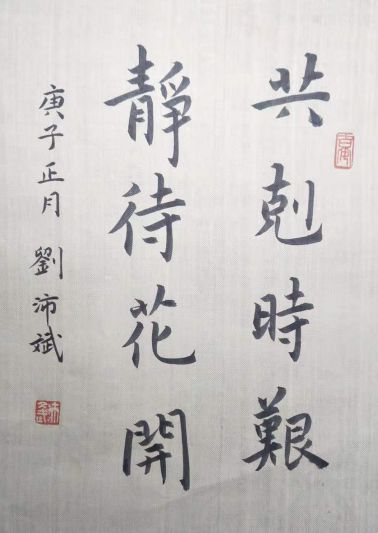 共剋時艱
靜待花開
庚子正月 劉沛斌